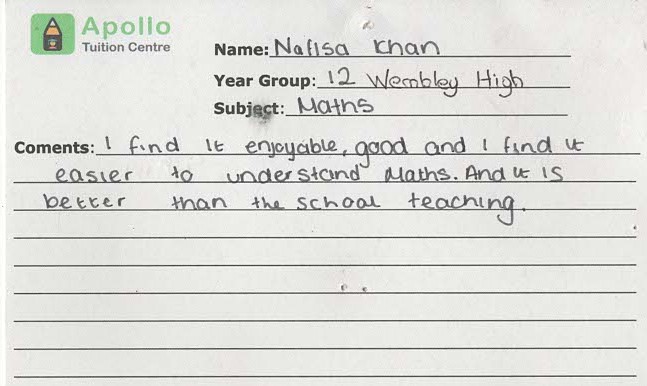 Apollo
Tuition Centre
Name: Nafisa Khan
Year Group: 12 Wembley High
Subject: Maths
Coments: I find it enjoyable, good and I find it
easier to understand Maths. And it is
better than the school teaching.